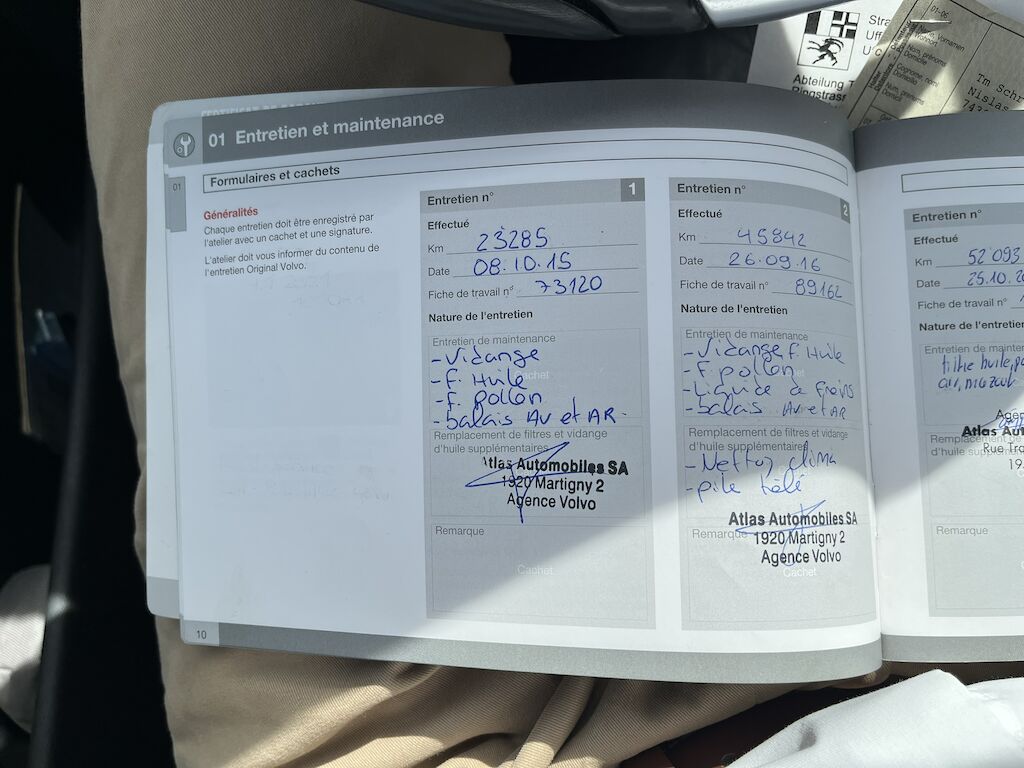 01 Entretien et maintenance
01
Formulaires et cachets
Généralités
Chaque entretien doit être enregistré par
l'atelier avec un cachet et une signature.
L'atelier doit vous informer du contenu de
l'entretien Original Volvo.
Entretien n° 1
Effectué
Km 23285
Date 08.10.15
Fiche de travail n° 73120
Nature de l'entretien
Entretien de maintenance
-Vidange
-F. Huile
Cachet
-F. pollon
-balais AV et AR.
Remplacement de filtres et vidange
d'huile supplémentaires
Atlas Automobiles SA
1920 Martigny 2
Agence Volvo
Remarque
Cachet
Entretien n° 2
Effectué
Km 45842
Date 26.09.16
Fiche de travail n° 89162
Nature de l'entretien
Entretien de maintenance
-Vidange F. Huile
-F. pollon
Cachet
-Liquide à freins
-balais AV et AR
Remplacement de filtres et vidange
d'huile supplémentaires
-Nettoy clima
-pile télé
Atlas Automobiles SA
Remarque 1920 Martigny 2
Agence Volvo
Cachet
Entretien n°
Effectué
Km 52 093
Date 25.10.20
Fiche de travail n°
Nature de l'entretien
Entretien de mainten
filtre huile, po
air, mazout
Agen
Atlas Aut
Remplacement de fi
Rue Tra
d'huile supplémen
19
Remarque
10
Stra
Uff
U c
Abteilung T
Ringstrass
01-06
Name, Vornamen
Wohnort
Nom, prénoms
Domicile
Cognome, nomi
Domicilio
Num, prenums
Domicil
Tm Schr
Nislas
743